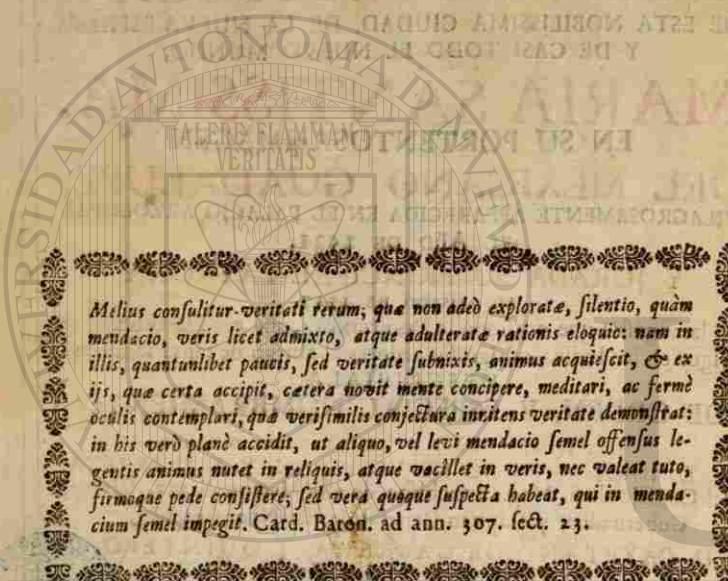 Melius conſulitur veritati rerum; quæ non adeò exploratæ, ſilentio, quàm
mendacio, veris licet admixto, atque adulteratæ rationis eloquio: nam in
illis, quantunlibet paucis, ſed veritate ſubnixis, animus acquieſcit, & ex
ijs, quæ certa accipit, cætera novit mente concipere, meditari, ac fermè
oculis contemplari, quæ veriſimilis conjectura innitens veritate demonſtrat:
in his verò planè accidit, ut aliquo, vel levi mendacio ſemel offenſus le-
gentis animus nutet in reliquis, atque vacillet in veris, nec valeat tuto,
firmoque pede conſiſtere; ſed vera quoque ſuſpecta habeat, qui in menda-
cium ſemel impegit. Card. Baron. ad ann. 307. ſect. 23.
ALERE FLAMMAM
VERITATIS